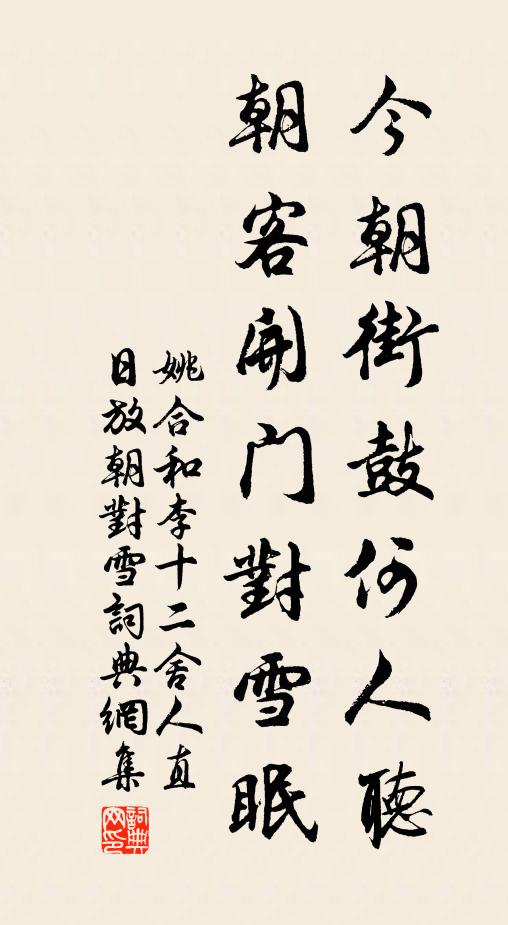 今朝街鼓何人聽
朝客開门對雪眠
姚合和李十二舍人直
日放朝對雪詞典網集
詞典
网印